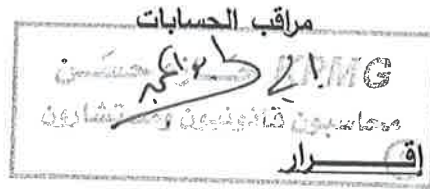 مراقب الحسابات
KPMG حازم حسن
محاسبون قانونيون ومستشارون
إقــــرار